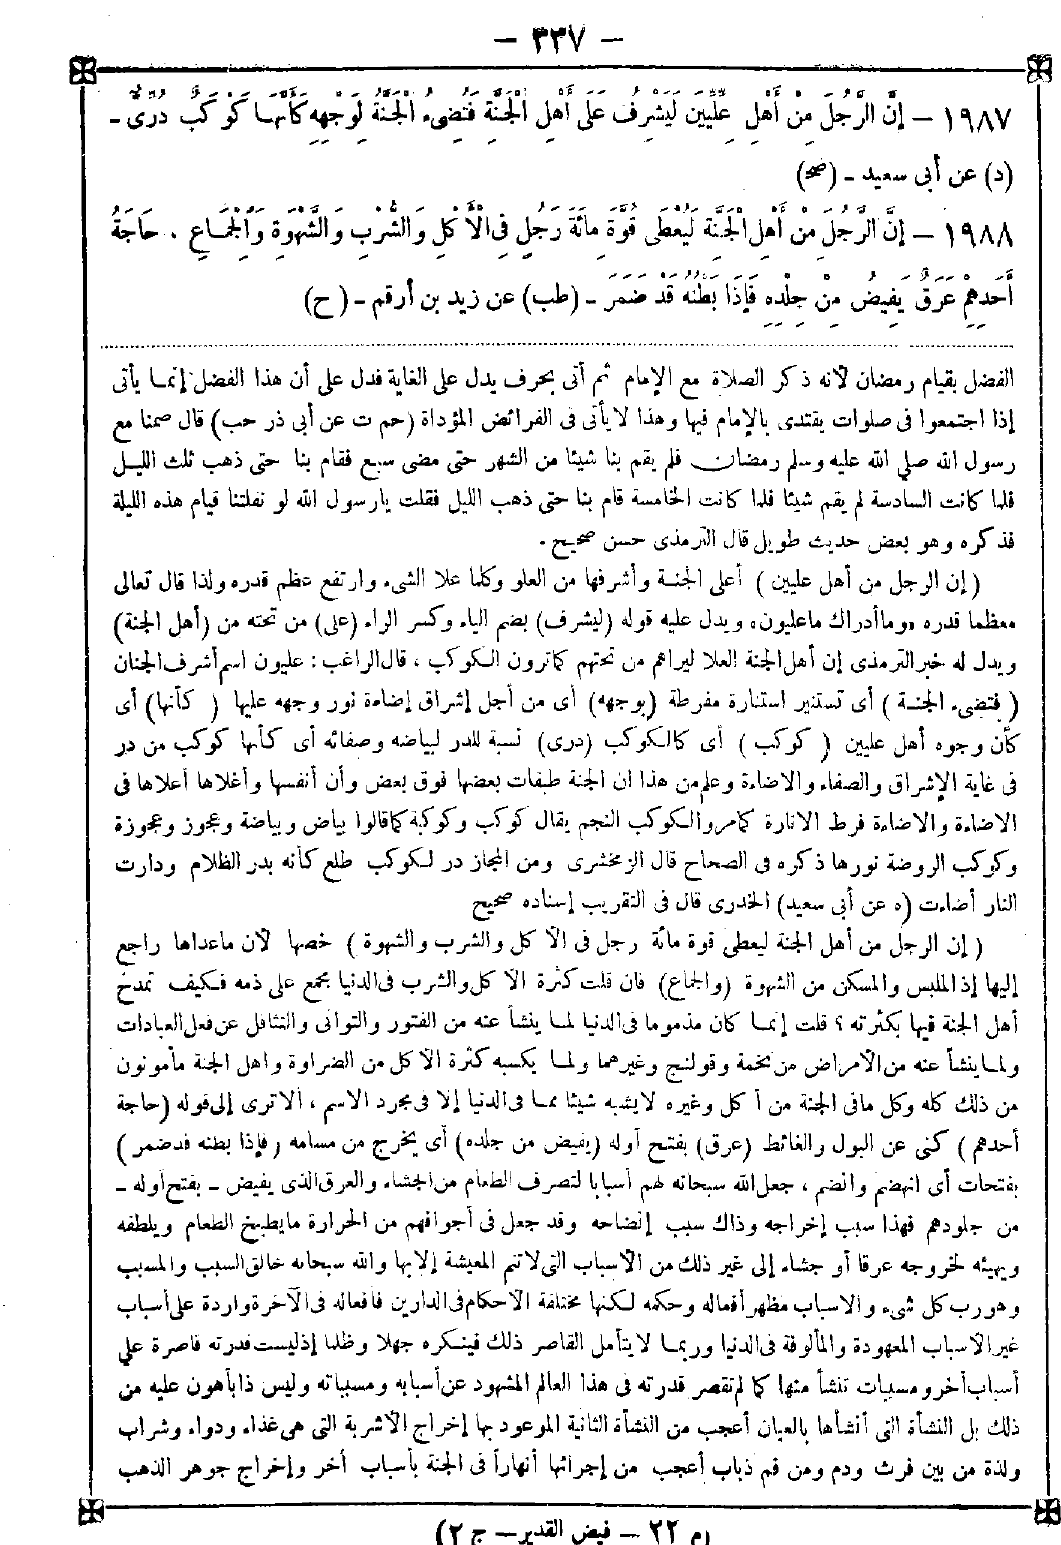 — ٣٣٧ —
١٩٨٧ — إِنَّ الرَّجُلَ مِنْ أَهْلِ عِلِّيِّينَ لَيُشْرِفُ عَلَى أَهْلِ الْجَنَّةِ فَتُضِيءُ الْجَنَّةُ لِوَجْهِهِ كَأَنَّهَا كَوْكَبٌ دُرِّيٌّ -
(د) عن أبى سعيد - (صح)
١٩٨٨ — إِنَّ الرَّجُلَ مِنْ أَهْلِ الْجَنَّةِ لَيُعْطَى قُوَّةَ مِائَةِ رَجُلٍ فِى الْأَكْلِ وَالشُّرْبِ وَالشَّهْوَةِ وَالْجِمَاعِ . حَاجَةُ
أَحَدِهِمْ عَرَقٌ يَفِيضُ مِنْ جِلْدِهِ فَإِذَا بَطْنُهُ قَدْ ضَمَرَ - (طب) عن زيد بن أرقم - (ح)
الفضل بقيام رمضان لأنه ذكر الصلاة مع الإمام ثم أتى بحرف يدل على الغاية فدل على أن هذا الفضل إنما يأتى
إذا اجتمعوا فى صلوات يقتدى بالإمام فيها وهذا لا يأتى فى الفرائض المؤداة (حم ت عن أبى ذر حب) قال صمنا مع
رسول الله صلى الله عليه وسلم رمضان فلم يقم بنا شيئا من الشهر حتى مضى سبع فقام بنا حتى ذهب ثلث الليل
فلما كانت السادسة لم يقم شيئا فلما كانت الخامسة قام بنا حتى ذهب الليل فقلت يارسول الله لو نفلتنا قيام هذه الليلة
فذكره وهو بعض حديث طويل قال الترمذى حسن صحيح .
( إن الرجل من أهل عليين ) أعلى الجنة وأشرفها من العلو وكلما علا الشىء وارتفع عظم قدره ولذا قال تعالى
معظما قدره «وماأدراك ماعليون» ويدل عليه قوله (ليشرف) بضم الياء وكسر الراء (على) من تحته من (أهل الجنة)
ويدل له خبر الترمذى إن أهل الجنة العلا ليراهم من تحتهم كما ترون الكوكب ، قال الراغب : عليون اسم أشرف الجنان
( فتضىء الجنة ) أى تستنير استنارة مفرطة (بوجهه) أى من أجل إشراق إضاءة نور وجهه عليها ( كأنها) أى
كأن وجوه أهل عليين ( كوكب ) أى كالكوكب (درى) نسبة للدر لبياضه وصفائه أى كأنها كوكب من در
فى غاية الإشراق والصفاء والاضاءة وعلم من هذا ان الجنة طبقات بعضها فوق بعض وأن أنفسها وأغلاها أعلاها فى
الاضاءة والاضاءة فرط الانارة كمامر والكوكب النجم يقال كوكب وكوكبة كما قالوا بياض وبياضة وعجوز وعجوزة
وكوكب الروضة نورها ذكره فى الصحاح قال الزمخشرى ومن المجاز در لكوكب طلع كأنه بدر الظلام ودارت
النار أضاءت (ه عن أبى سعيد) الخدرى قال فى التقريب إسناده صحيح
( إن الرجل من أهل الجنة ليعطى قوة مائة رجل فى الأكل والشرب والشهوة ) خصها لأن ماعداها راجع
إليها إذ الملبس والمسكن من الشهوة (والجماع) فان قلت كثرة الأكل والشرب فى الدنيا مجمع على ذمه فكيف تمدح
أهل الجنة فيها بكثرته ؟ قلت إنما كان مذموما فى الدنيا لما ينشأ عنه من الفتور والتوانى والتثاقل عن فعل العبادات
ولما ينشأ عنه من الأمراض من تخمة وقولنج وغيرهما ولما يكسبه كثرة الأكل من الضراوة وأهل الجنة مأمونون
من ذلك كله وكل مافى الجنة من أكل وغيره لايشبه شيئا مما فى الدنيا إلا فى مجرد الاسم ، ألا ترى إلى قوله (حاجة
أحدهم ) كنى عن البول والغائط (عرق) بفتح أوله (يفيض من جلده) أى يخرج من مسامه (فإذا بطنه قد ضمر )
بفتحات أى انهضم وانضم ، جعل الله سبحانه لهم أسبابا لتصرف الطعام من الجشاء والعرق الذى يفيض - بفتح أوله -
من جلودهم فهذا سبب إخراجه وذاك سبب إنضاجه وقد جعل فى أجوافهم من الحرارة مايطبخ الطعام ويلطفه
ويهيئه لخروجه عرقا أو جشاء إلى غير ذلك من الأسباب التى لاتتم المعيشة إلا بها والله سبحانه خالق السبب والمسبب
وهو رب كل شىء والاسباب مظهر أفعاله وحكمه لكنها مختلفة الأحكام فى الدارين فأفعاله فى الآخرة واردة على أسباب
غير الأسباب المعهودة والمألوفة فى الدنيا وربما لايتأمل القاصر ذلك فينكره جهلا وظلما إذ ليست قدرته قاصرة على
أسباب أخر ومسببات تنشأ منها كما لم تقصر قدرته فى هذا العالم المشهود عن أسبابه ومسبباته وليس ذا بأهون عليه من
ذلك بل النشأة التى أنشأها بالعيان أعجب من النشأة الثانية الموعود بها إخراج الأشربة التى هى غذاء ودواء وشراب
ولذة من بين فرث ودم ومن فم ذباب أعجب من إجرائها أنهاراً فى الجنة بأسباب أخر وإخراج جوهر الذهب
(م ٢٢ — فيض القدير — ج ٢)